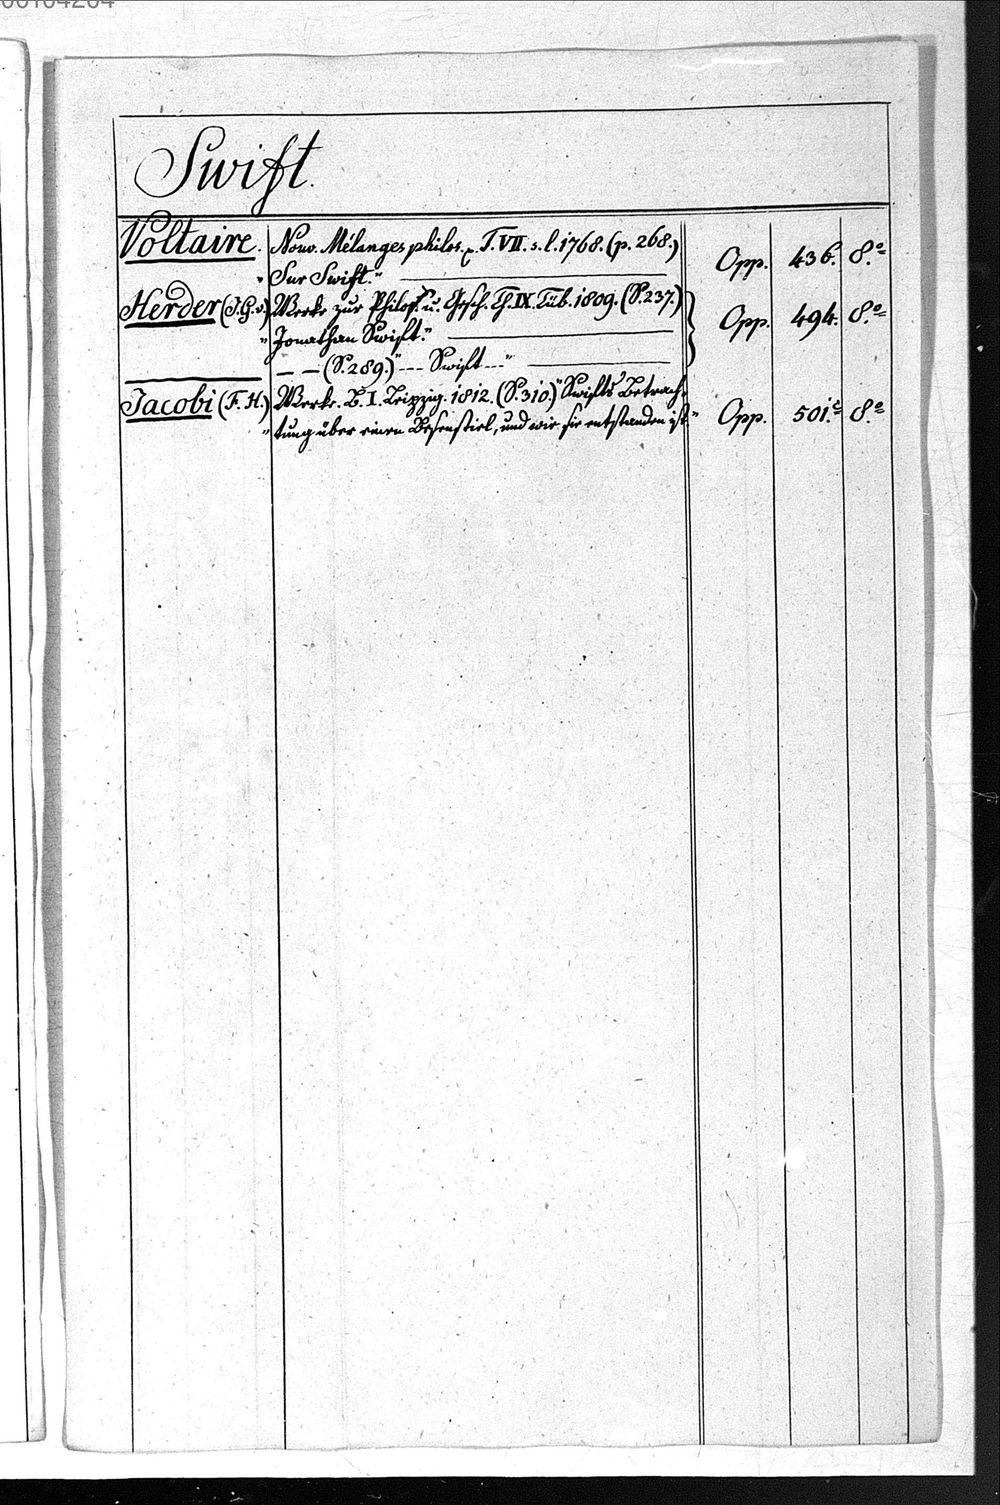 00104204
Swift.
Voltaire. Nouv. Mélanges philos. T. VII. s. l. 1768. (p. 268.) Opp. 436. 8.º
"Sur Swift."
Herder (J. G. v.) Werke zur Philos. u. Gesch. Th. IX. Tüb. 1809. (S. 237.) Opp. 494. 8.º
"Jonathan Swift."
— — (S. 289.) "--- Swift ---"
Jacobi (F. H.) Werke. B. I. Leipzig. 1812. (S. 310.) "Swifts Betrach-
tung über einen Besenstiel, und wie sie entstanden ist" Opp. 501.c 8.º